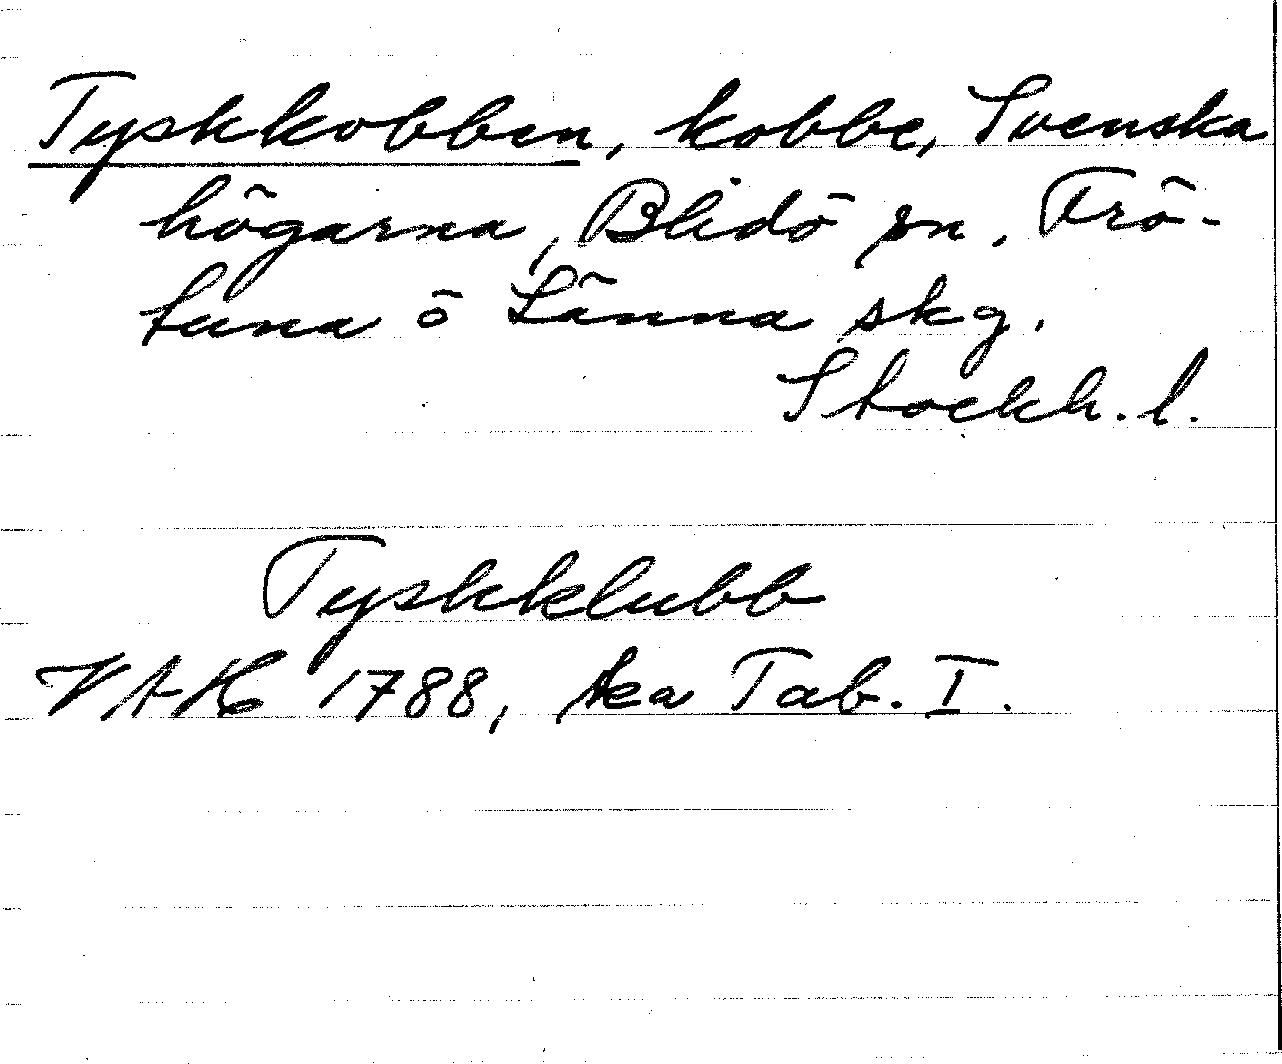 Tyskkobben, kobbe, Svenska
högarna, Blidö sn, Frö-
tuna o Länna skg.
Stockh. l.
Tyskklubb
VAH 1788, tea Tab. I.